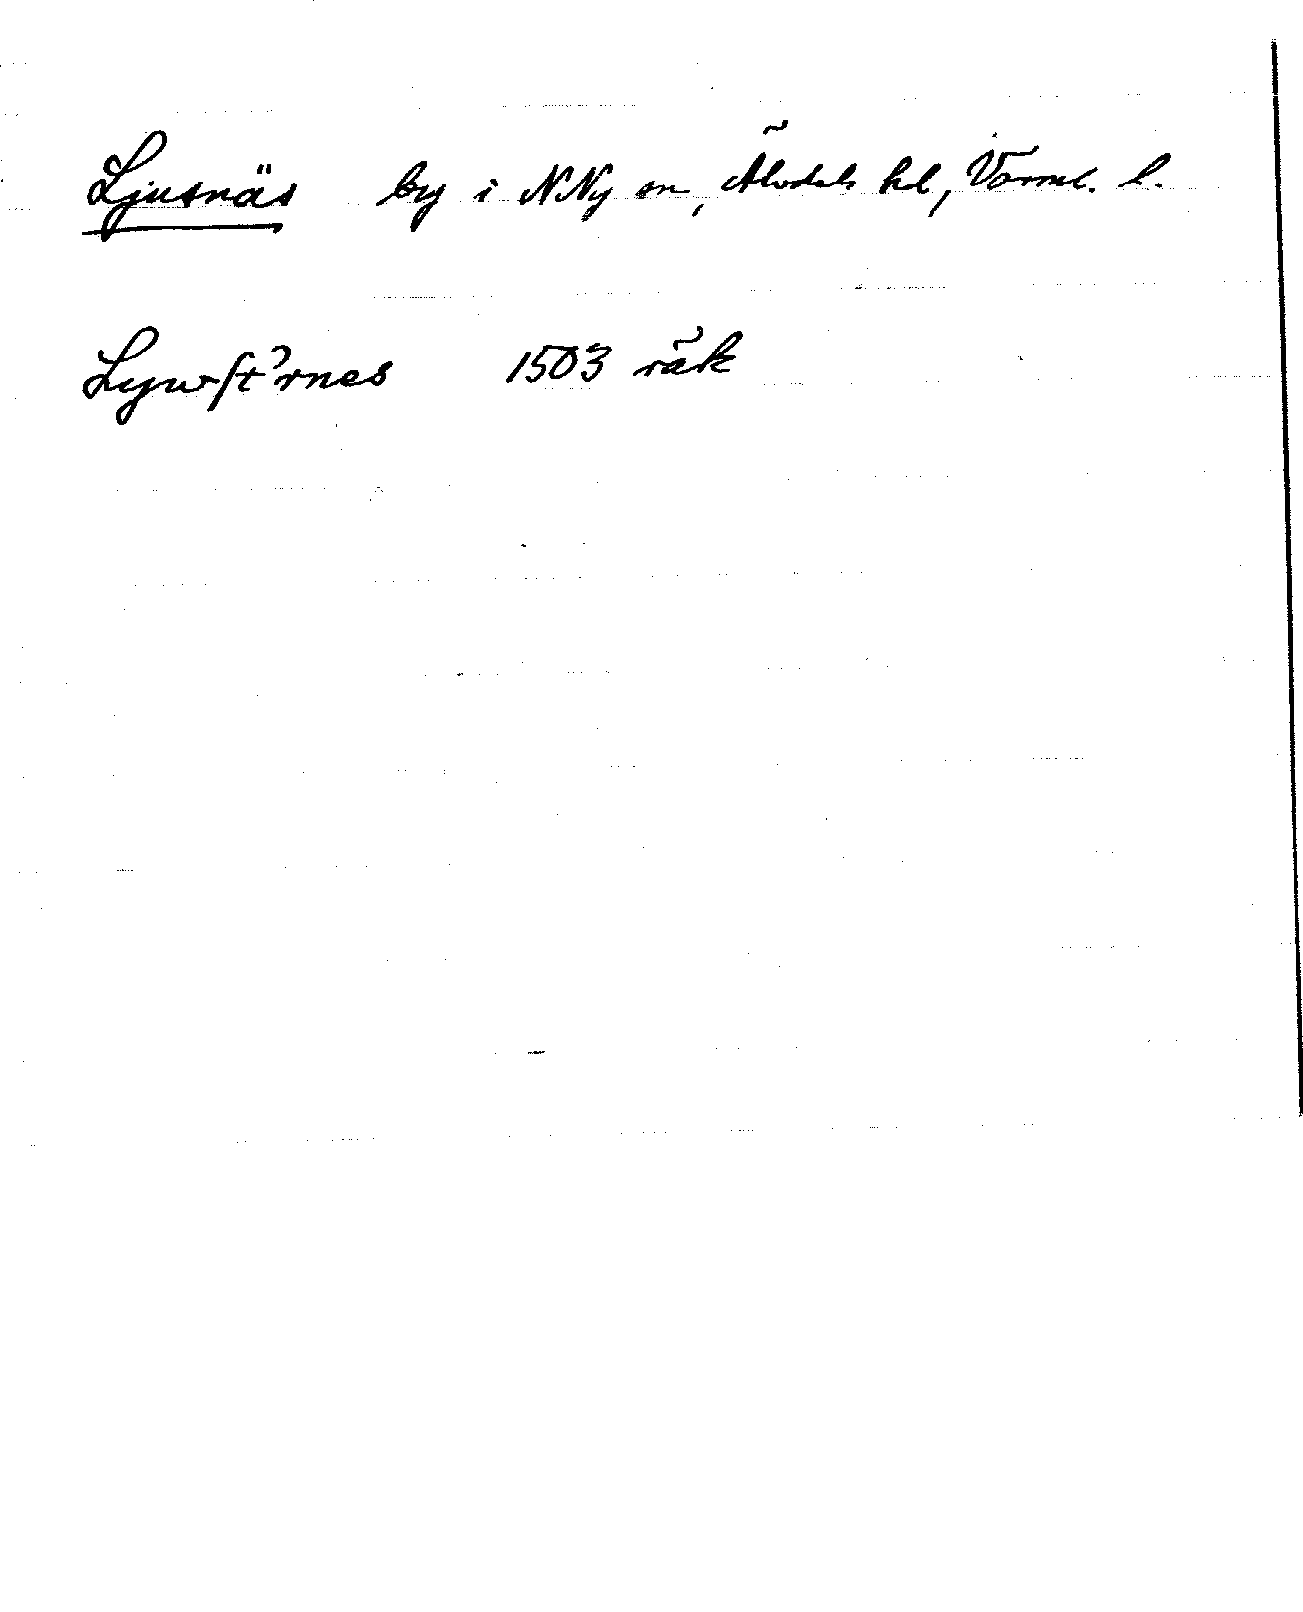 Ljusnäs by i N Ny sn, Älvdals hd, Värml. l.
Lywſt?rnes 1503 räk